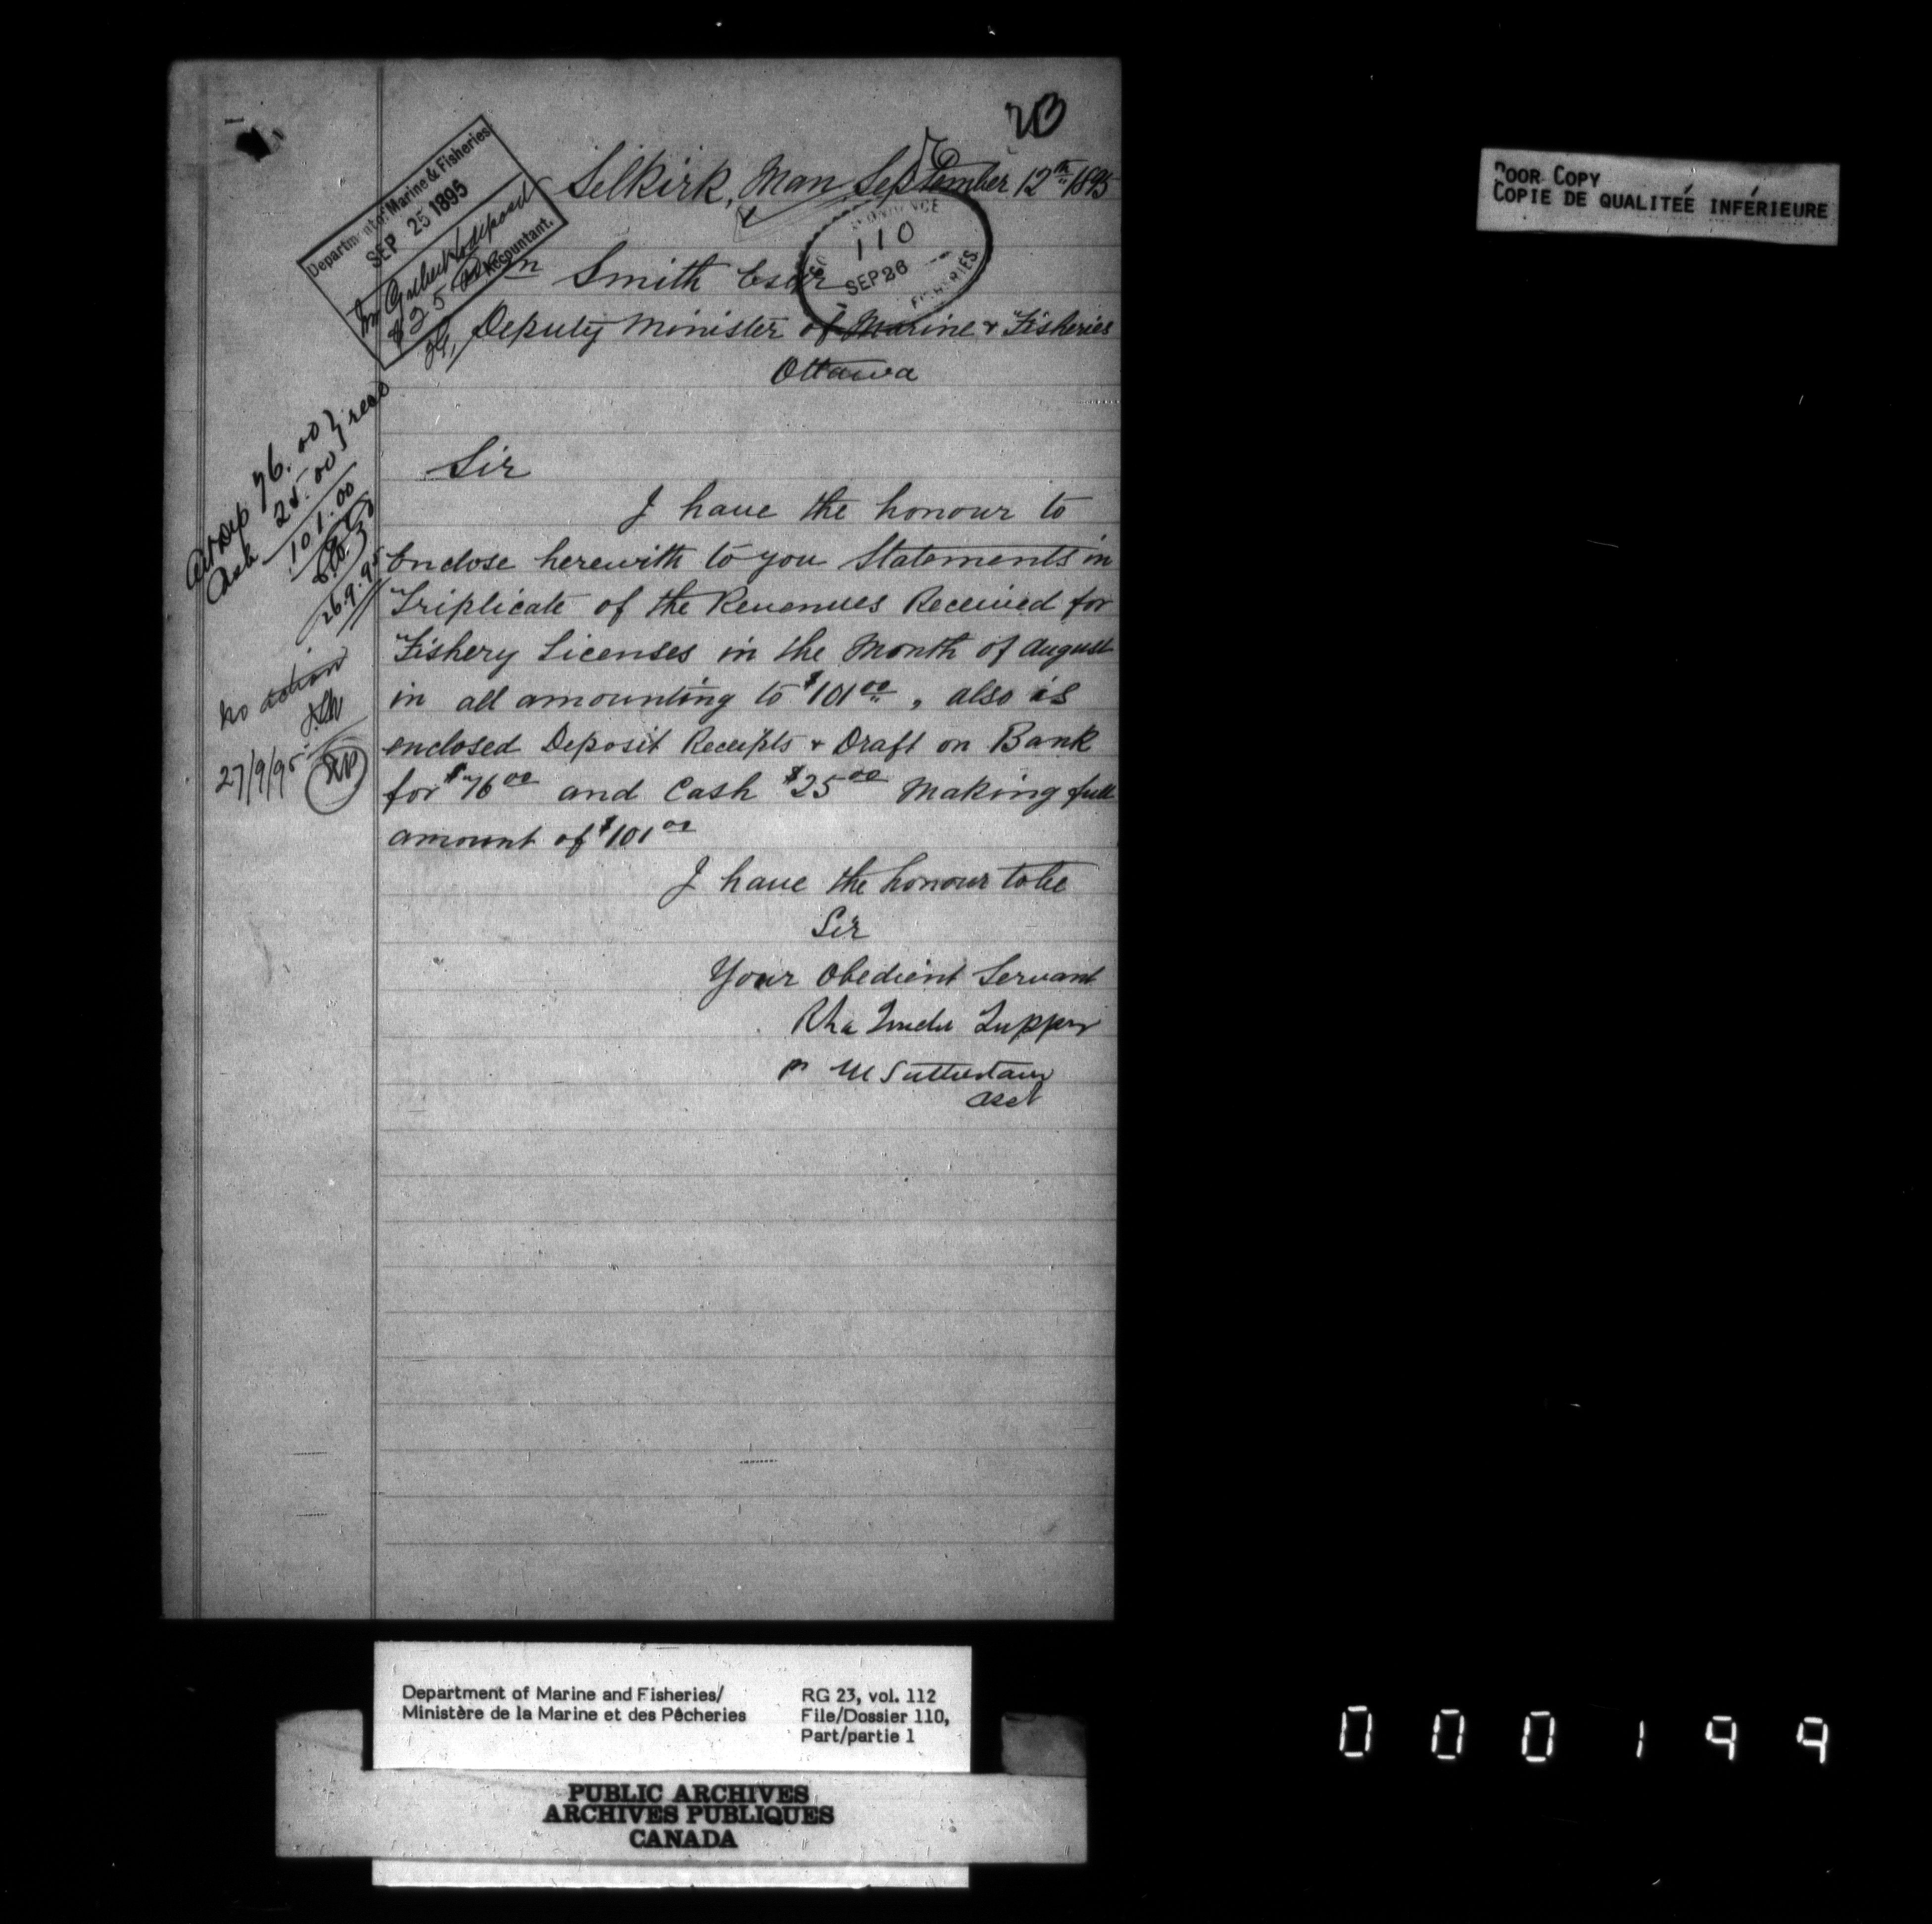 20
Selkirk, Man September 12th 1895
Department of Marine & Fisheries
SEP 25 1895
to deposit
$25
Accountant.
110
SEP 26
FISHERIES
Smith Esqr
Deputy Minister of Marine & Fisheries
Ottawa
76.00 } recd
Cash 25.00
101.00
26.9.95
Sir
I have the honour to
Enclose herewith to you Statements in
Triplicate of the Revenues Received for
Fishery Licenses in the Month of August
in all amounting to $101.00, also is
enclosed Deposit Receipts & Draft on Bank
for $76.00 and Cash $25.00 Making full
amount of $101.00
no action
27/9/95
I have the honour to be
Sir
Your Obedient Servant
Tupper
p M Sutherland
POOR COPY
COPIE DE QUALITÉE INFÉRIEURE
Department of Marine and Fisheries/
Ministère de la Marine et des Pêcheries
RG 23, vol. 112
File/Dossier 110,
Part/partie 1
PUBLIC ARCHIVES
ARCHIVES PUBLIQUES
CANADA
000199